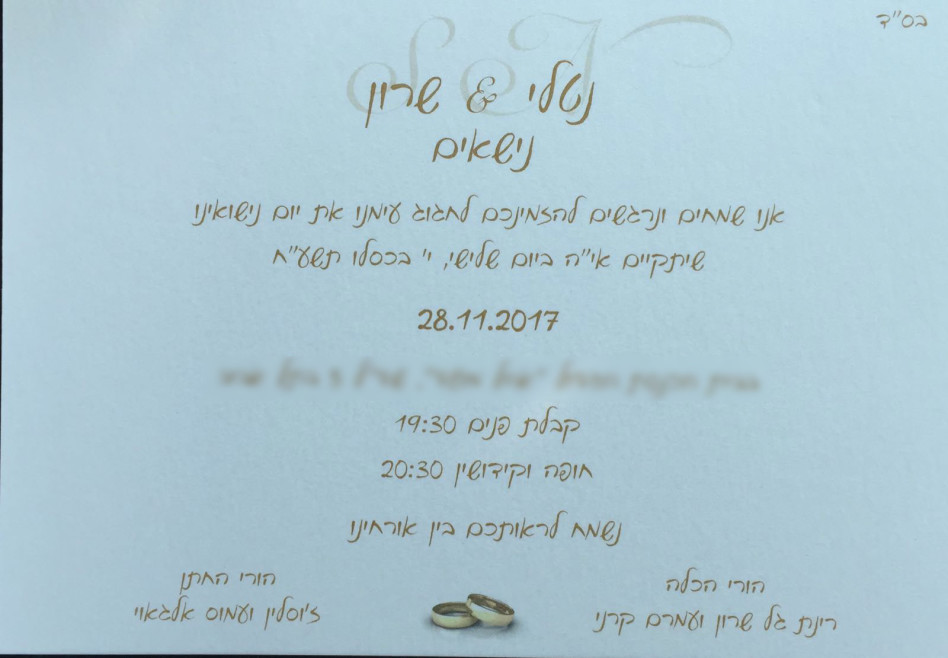 בס"ד
נטלי & שרון
נישאים
אנו שמחים ונרגשים להזמינכם לחגוג עימנו את יום נישואינו
שיתקיים אי"ה ביום שלישי, י' בכסלו תשע"ח
28.11.2017
קבלת פנים 19:30
חופה וקידושין 20:30
נשמח לראותכם בין אורחינו
הורי הכלה
רינת גל שרון ועמרם קרני
הורי החתן
ז'וסלין ועמוס אלגאוי